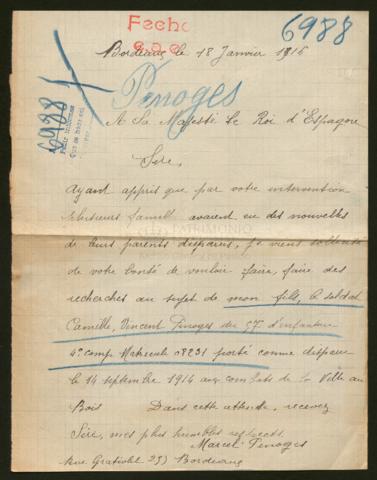 Fecho
6988
Bordeaux le 18 Janvier 1916
6988
Penoges
A Sa Majesté Le Roi d'Espagne
Sire,
Ayant appris que par votre intervention
plusieurs famill avaient eu des nouvelles
de leurs parents disparus, je viens
de votre bonté de vouloir faire, faire des
recherches au sujet de mon fils, le soldat
Camille, Vincent Penoges du 57e d'infanterie
4e comp Matricule 08231 porté comme disparu
le 14 septembre 1914 aux combats de la Ville au
Bois Dans cette attente, recevez
Sire, mes plus humbles respects
Marcel Penoges
Rue Gratiolet 25) Bordeaux
PATRIMONIO